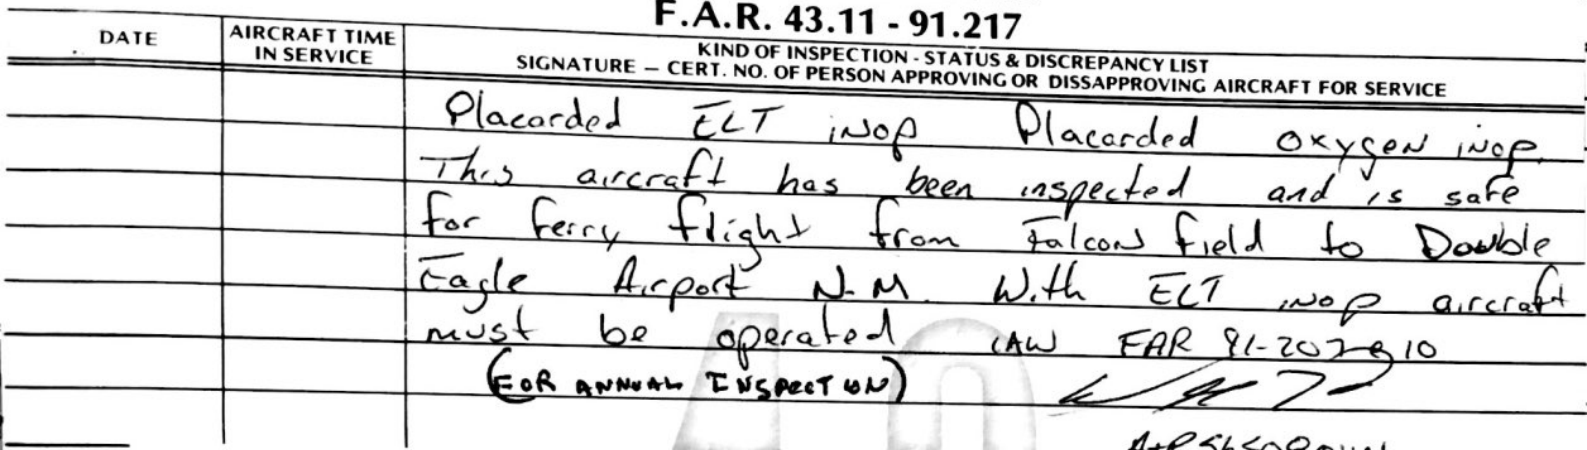 F.A.R. 43.11 - 91.217
DATE
AIRCRAFT TIME
IN SERVICE
KIND OF INSPECTION - STATUS & DISCREPANCY LIST
SIGNATURE — CERT. NO. OF PERSON APPROVING OR DISSAPPROVING AIRCRAFT FOR SERVICE
Placarded ELT inop Placarded oxygen inop.
This aircraft has been inspected and is safe
for ferry flight from Falcon field to Double
Eagle Airport N.M. With ELT inop aircraft
must be operated IAW FAR 91-207
(FOR ANNUAL INSPECTION)